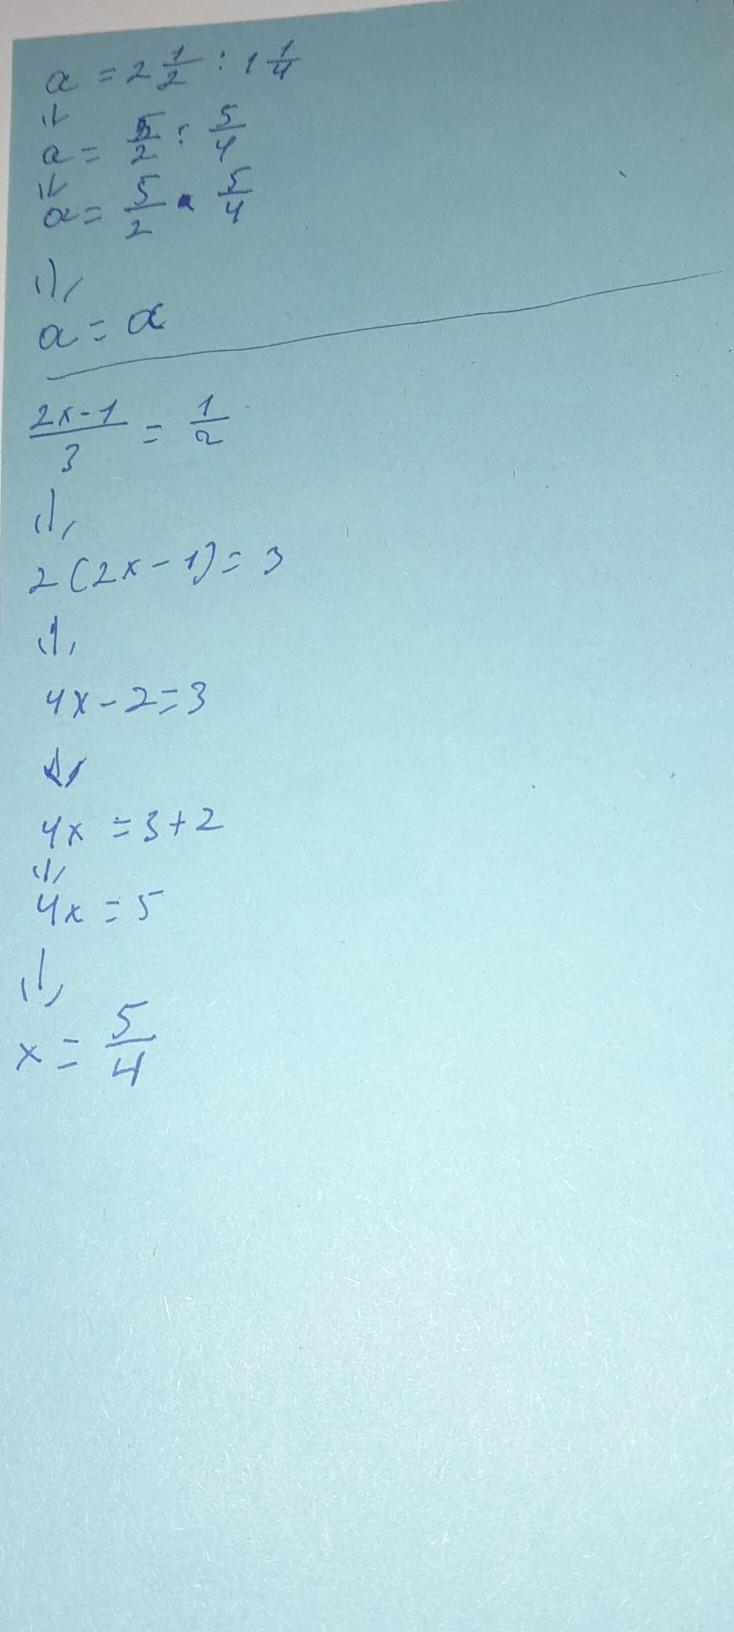 a = 2 1/2 : 1 1/4
⇓
a = 5/2 : 5/4
⇓
a = 5/2 · 5/4
⇓
a = a
(2x-1)/3 = 1/2
⇓
2(2x-1) = 3
⇓
4x-2=3
⇓
4x = 3+2
⇓
4x = 5
⇓
x = 5/4